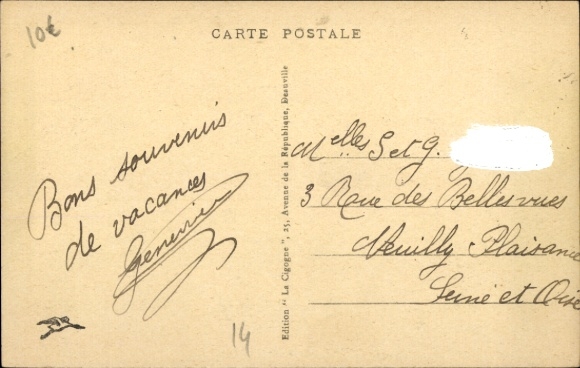 10€
CARTE POSTALE
Bons souvenirs
de vacances
Genevieve
Edition " La Cigogne ", 25, Avenue de la République, Deauville
Melles S et G.
3 Rue des Bellesvues
Neuilly Plaisance
Seine et Oise
14